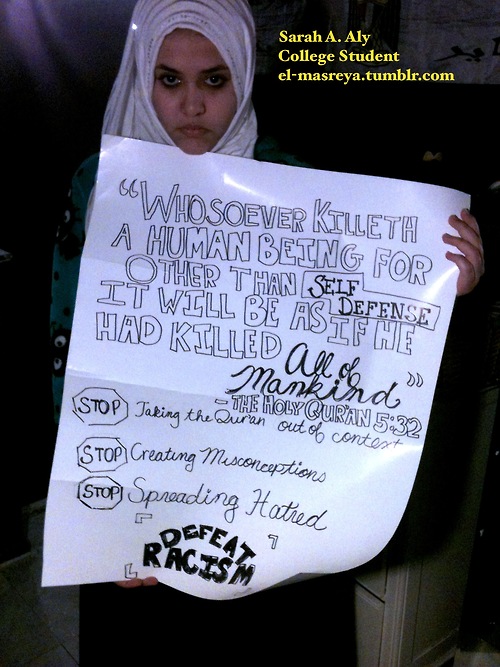 Sarah A. Aly
College Student
el-masreya.tumblr.com
“WHOSOEVER KILLETH
A HUMAN BEING FOR
OTHER THAN SELF
DEFENSE
IT WILL BE AS IF HE
HAD KILLED All of
Mankind”
- THE HOLY QUR'AN 5:32
STOP Taking the Qur'an out of context
STOP Creating Misconceptions
STOP Spreading Hatred
DEFEAT
RACISM